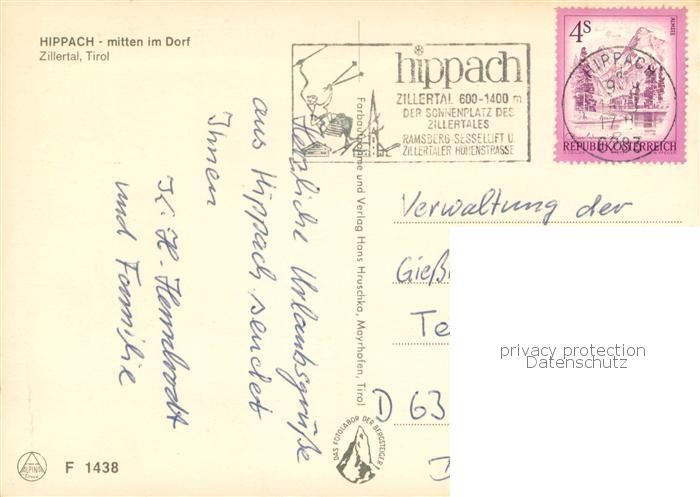 HIPPACH - mitten im Dorf
Zillertal, Tirol
Herzliche Urlaubsgrüße
aus Hippach sendet
Ihnen
und Familie
F 1438
Farbaufnahme und Verlag Hans Hruschka, Mayrhofen, Tirol
DAS FOTOLABOR DER BERGSTEIGER
hippach
ZILLERTAL 600-1400 m
DER SONNENPLATZ DES
ZILLERTALES
RAMSBERG-SESSELLIFT U.
ZILLERTALER HÖHENSTRASSE
4S
ALMSEE
REPUBLIK ÖSTERREICH
HIPPACH
Verwaltung der
Gieß
Te
D 63
privacy protection
Datenschutz